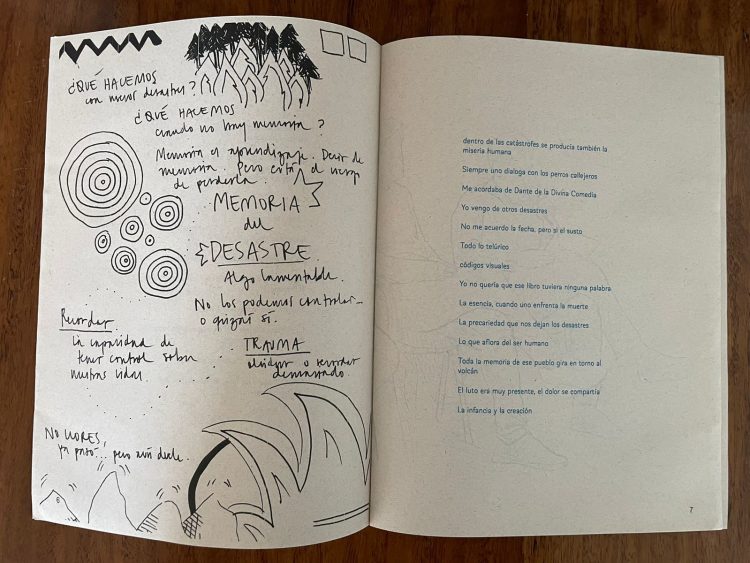 ¿QUÉ HACEMOS
con menos desastres?
¿QUÉ HACEMOS
cuando no hay memoria?
Memoria es aprendizaje. Decir de
memoria. Pero está el riesgo
de perderla.
MEMORIA
del
DESASTRE
Algo lamentable.
No los podemos controlar...
o quizás sí.
Recordar
La capacidad de
tener control sobre
nuestras vidas
TRAUMA
olvidar o recordar
demasiado.
NO LLORES,
ya pasó... pero aún duele.
6
dentro de las catástrofes se producía también la
miseria humana
Siempre uno dialoga con los perros callejeros
Me acordaba de Dante de la Divina Comedia
Yo vengo de otros desastres
No me acuerdo la fecha, pero si el susto
Todo lo telúrico
códigos visuales
Yo no quería que ese libro tuviera ninguna palabra
La esencia, cuando uno enfrenta la muerte
La precariedad que nos dejan los desastres
Lo que aflora del ser humano
Toda la memoria de ese pueblo gira en torno al
volcán
El luto era muy presente, el dolor se compartía
La infancia y la creación
7